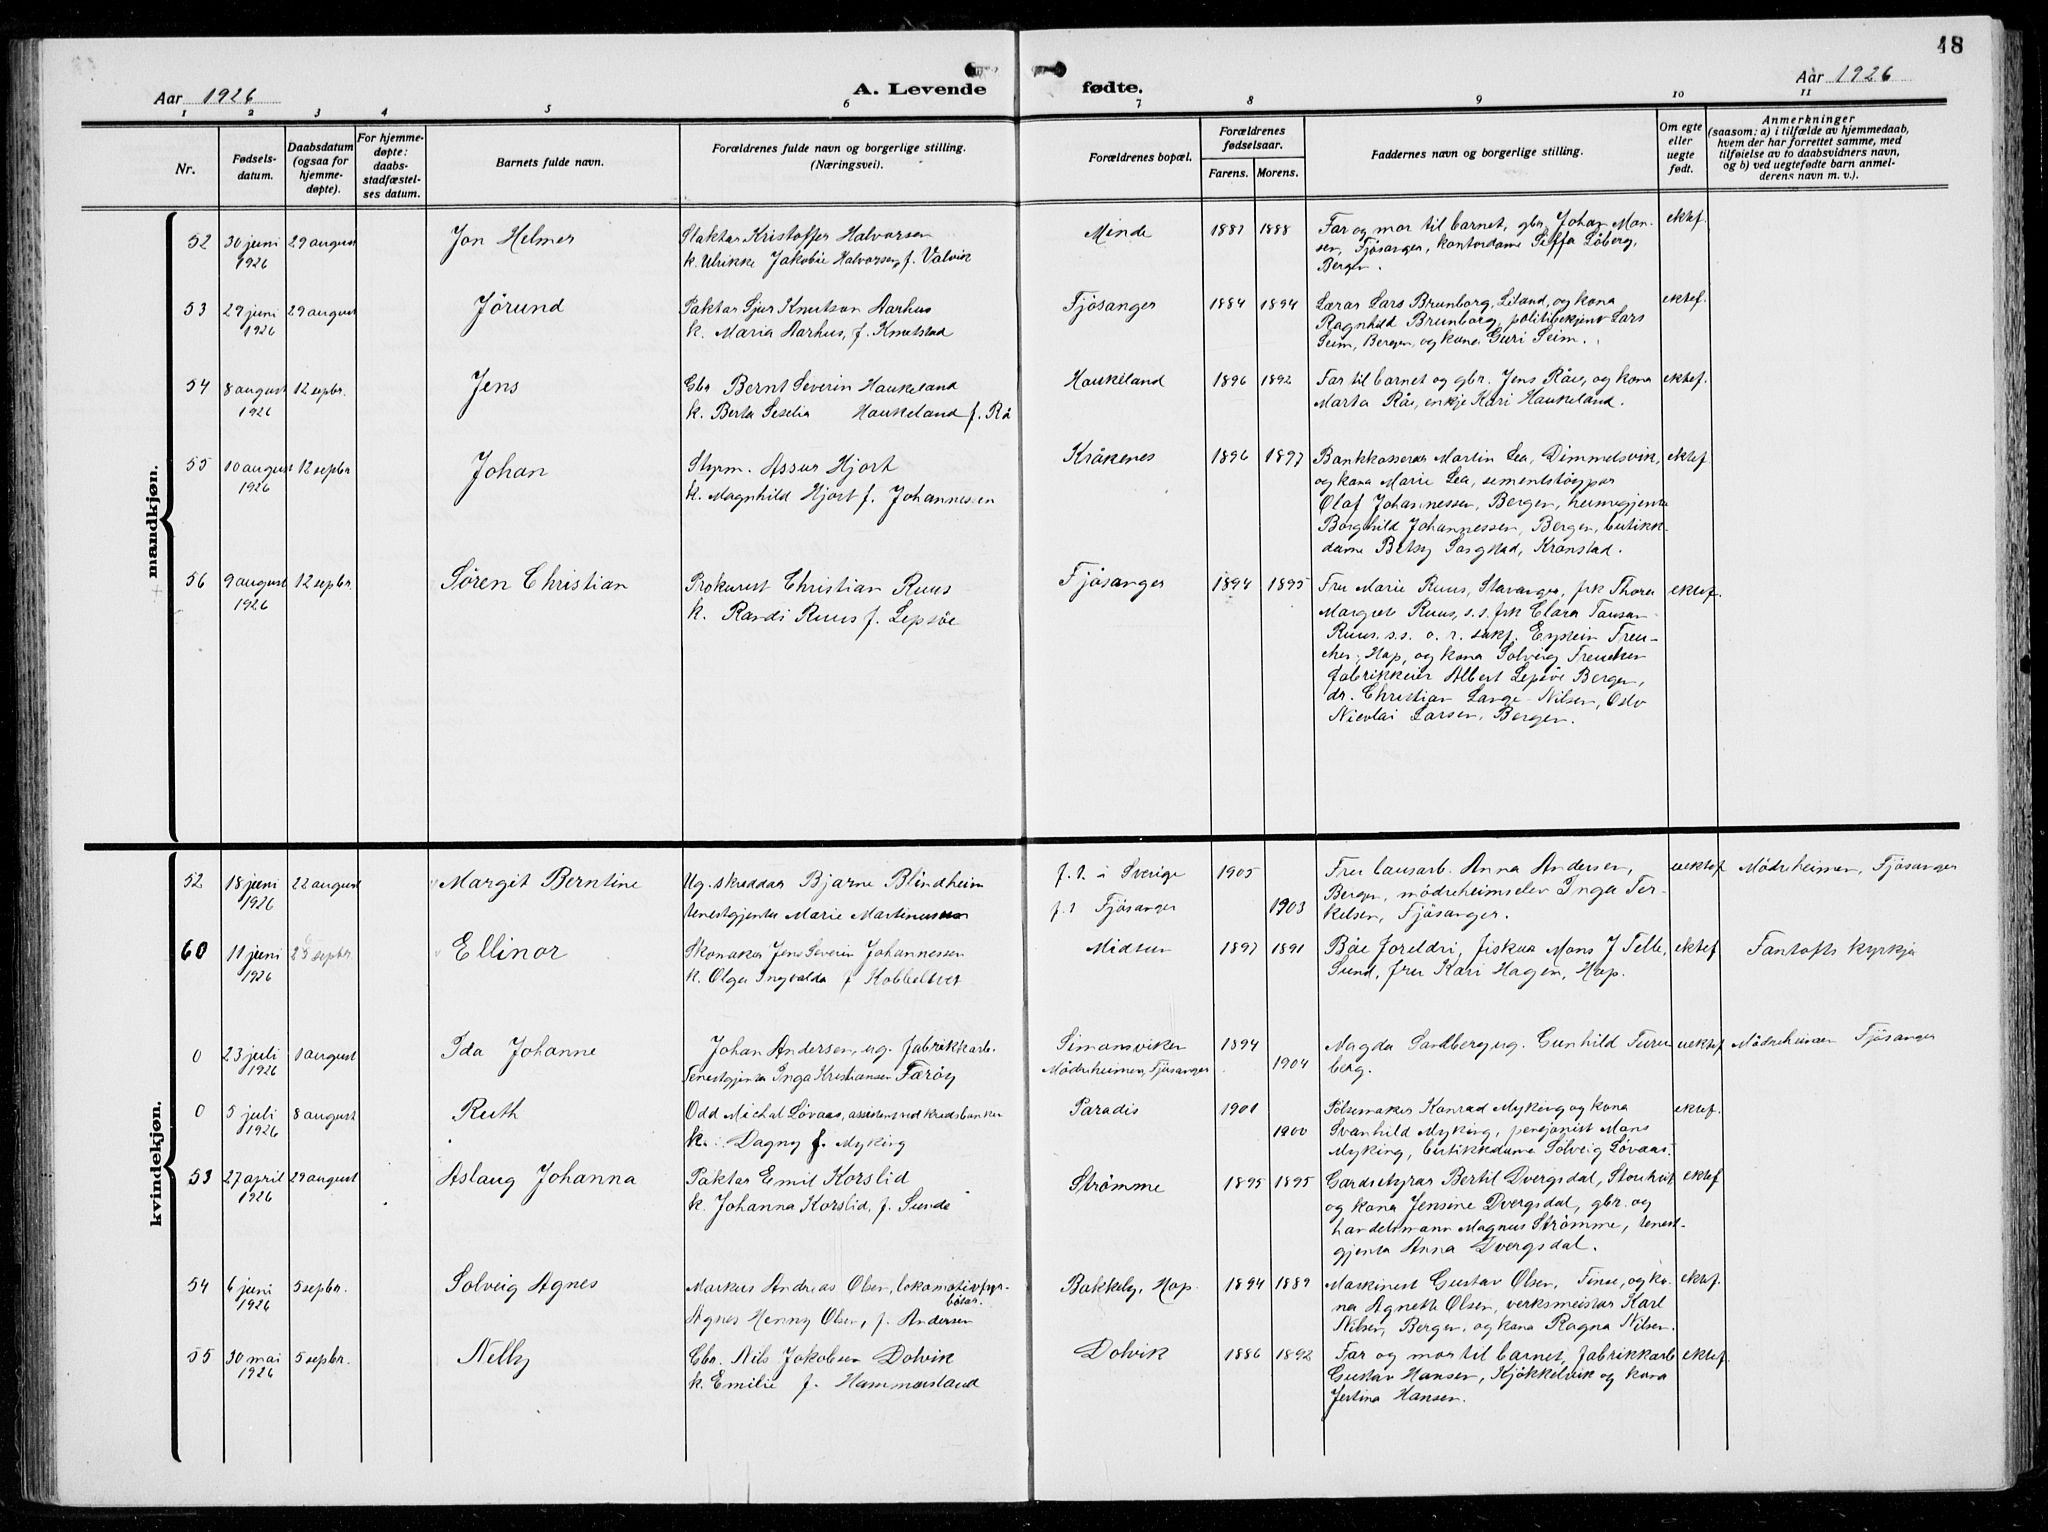 18
Aar 1926
A. Levende
fødte.
Aar 1926
1 2 3 4 5 6 7 8 9 10 11
Nr.
Fødsels-
datum.
Daabsdatum
(ogsaa for
hjemme-
døpte).
For hjemme-
døpte:
daabs-
stadfæstel-
ses datum.
Barnets fulde navn.
Forældrenes fulde navn og borgerlige stilling.
(Næringsvei).
Forældrenes bopæl.
Forældrenes
fødselsaar.
Farens. Morens.
Faddernes navn og borgerlige stilling.
Om egte
eller
uegte
født.
Anmerkninger
(saasom: a) i tilfælde av hjemmedaab,
hvem der har forrettet samme, med
tilføielse av to daabsvidners navn,
og b) ved uegtefødte barn anmel-
derens navn m. v.).
mandkjøn.
52 30 juni 1926 29 august Jon Helmer
Slaktar Kristoffer Halvorsen
k. Ulrikke Jakobie Halvorsen f. Valvik
Minde 1887 1888
Far og mor til barnet, gbr. Johan Mon-
sen, Fjøsanger, kontordame Seffa Løberg,
Bergen.
ektef.
53 29 juni 1926 29 august Jørund
Paktar Sjur Knutson Aarhus
k. Maria Aarhus, f. Knutstad
Fjøsanger 1884 1894
Lærar Lars Brunborg, Liland, og kona
Ragnhild Brunborg, politibetjent Lars
Seim, Bergen, og kona Guri Seim.
ektef.
54 8 august 1926 12 septbr. Jens
Gbr Bernt Severin Haukeland
k. Berta Seselia Haukeland f. Rå
Haukeland 1896 1892
Far til barnet og gbr. Jens Råe, og kona
Marta Råe, enkje Kari Haukeland.
ektef.
55 10 august 1926 12 septbr Johan
Styrm. Assur Hjort
k. Magnhild Hjort f. Johannessen
Kråkenes 1896 1897
Bankkasserar Martin Lea, Dimmelsvik,
og kona Marie Lea, sementstøypar
Olaf Johannessen, Bergen, heimegjenta
Borghild Johannessen, Bergen, butikk-
dame Betsy Sørgstad, Kronstad.
ektef.
56 9 august 1926 12 septbr. Søren Christian
Prokurist Christian Ruus
k. Randi Ruus f. Lepsøe
Fjøsanger 1894 1895
Fru Marie Ruus, Stavanger, frk Thora
Margrete Ruus, s.s. frk Clara Tausan
Ruus. s.s. o. r. sakf. Eystein Treu-
cher, Hop, og kona Solveig Treucher
fabrikkeier Albert Lepsøe Bergen,
dr. Christian Lange-Nilsen, Oslo
Nicolai Larsen, Bergen.
ektef.
kvindekjøn.
52 18 juni 1926 22 august Margit Berntine
Ug. skreddar Bjarne Blindheim
tenestgjenta Marie Martinussen
f. t. i Sverige 1905
f. t Fjøsanger 1903
Fru lausarb. Anna Andersen,
Bergen, mødreheimselev Inga Ter-
kelsen, Fjøsanger.
uektef Mødreheimen, Fjøsanger
60 11 juni 1926 septbr. Ellinor
Skomaker Jens Severin Johannessen
k. Olga Ingvalda f Kobbeltvet
Midtun 1897 1891
Båe foreldri, fiskar Mons J Telle,
Sund, fru Kari Hagen, Hop.
ektef Fantofts kyrkja
0 23 juli 1926 1 august Ida Johanne
Johan Andersen, ug. fabrikkarb.
Tenestgjenta Inga Kristiansen Færøy
Simonsviken 1894
Mødreheimen, Fjøsanger 1904
Magda Sandberg ug. Gunhild Furu-
berg.
uektef Mødreheimen Fjøsanger
0 5 juli 1926 8 august Ruth
Odd Michal Løvaas, assistent ved kredsbanken
k. Dagny f. Myking
Paradis 1901 1900
Pølsemaker Konrad Myking og kona
Svanhild Myking, pensjonist Mons
Myking, butikkdame Solveig Løvaas.
ektef.
53 27 april 1926 29 august Aslaug Johanna
Paktar Emil Korslid
k. Johanna Korslid, f. Sunde
Strømme 1895 1895
Gardsstyrar Bertil Dvergsdal,
og kona Jensine Dvergsdal, gbr. og
handelsmann Magnus Strømme, tenest-
gjenta Anna Dvergsdal.
ektef
54 6 juni 1926 5 septbr. Solveig Agnes
Markus Andreas Olsen, lokomotivfyr-
bøter.
Agnes Henny Olsen, f. Andersen
Bakkely, Hop. 1894 1889
Maskinist Gustav Olsen, Finse, og ko-
na Agnethe Olsen, verksmeistar Karl
Nilsen, Bergen, og kona Ragna Nilsen.
ektef.
55 30 mai 1926 5 septbr. Nelly
Gbr. Nils Jakobsen Dolvik
k. Emilie f. Hammersland
Dolvik 1886 1892
Far og mor til barnet, fabrikkarb
Gustav Hansen, Kjøkkelvik og kona
Jertina Hansen.
ektef.